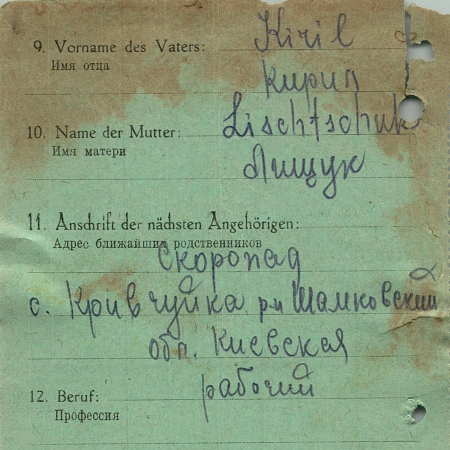 9. Vorname des Vaters: Kiril
Имя отца
Кирил
10. Name der Mutter: Lischtschuk
Имя матери
Лищук
11. Anschrift der nächsten Angehörigen:
Адрес ближайших родственников
Скоропад
с. Кривчуйка р-н Шамковский
обл. Киевская
12. Beruf: рабочий
Профессия